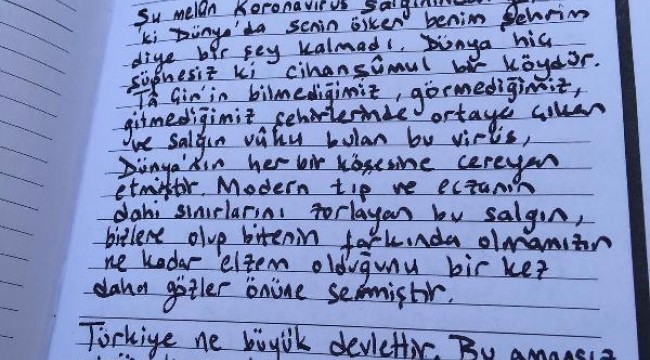 Şu melân Koronavirüs salgınında
ki Dünya'da senin ülken benim şehrim
diye bir şey kalmadı. Dünya hiç
şüphesiz ki cihanşûmul bir köydür.
Tâ Çin'in bilmediğimiz, görmediğimiz,
gitmediğimiz şehirlerinde ortaya çıkan
ve salgın vûku bulan bu virüs,
Dünya'nın her bir köşesine cereyan
etmiştir. Modern tıp ve eczanın
dahi sınırlarını zorlayan bu salgın,
bizlere olup bitenin farkında olmamızın
ne kadar elzem olduğunu bir kez
daha gözler önüne sermiştir.
Türkiye ne büyük devlettir. Bu amansız